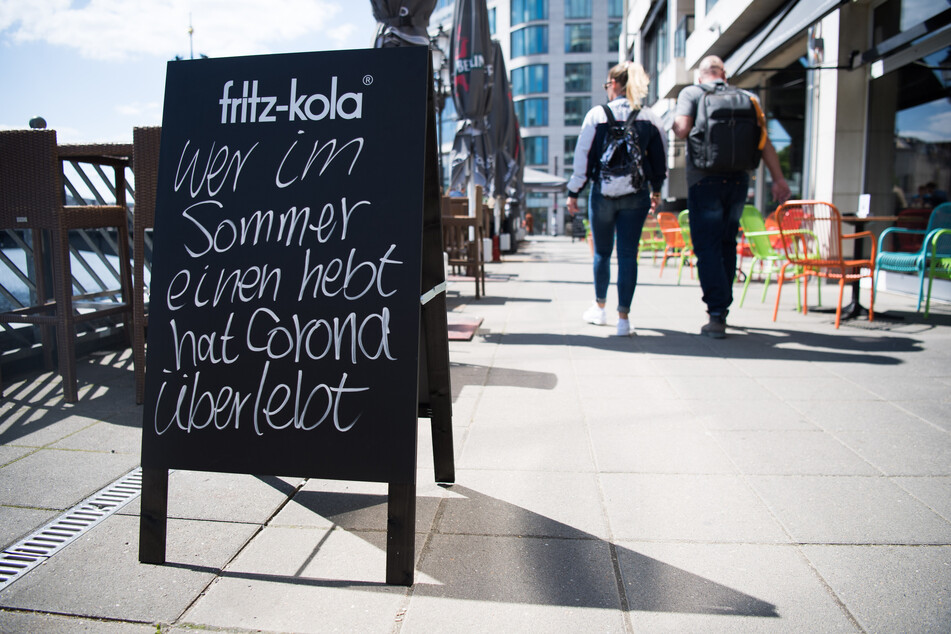 fritz-kola®
Wer im
Sommer
einen hebt
hat Corona
überlebt